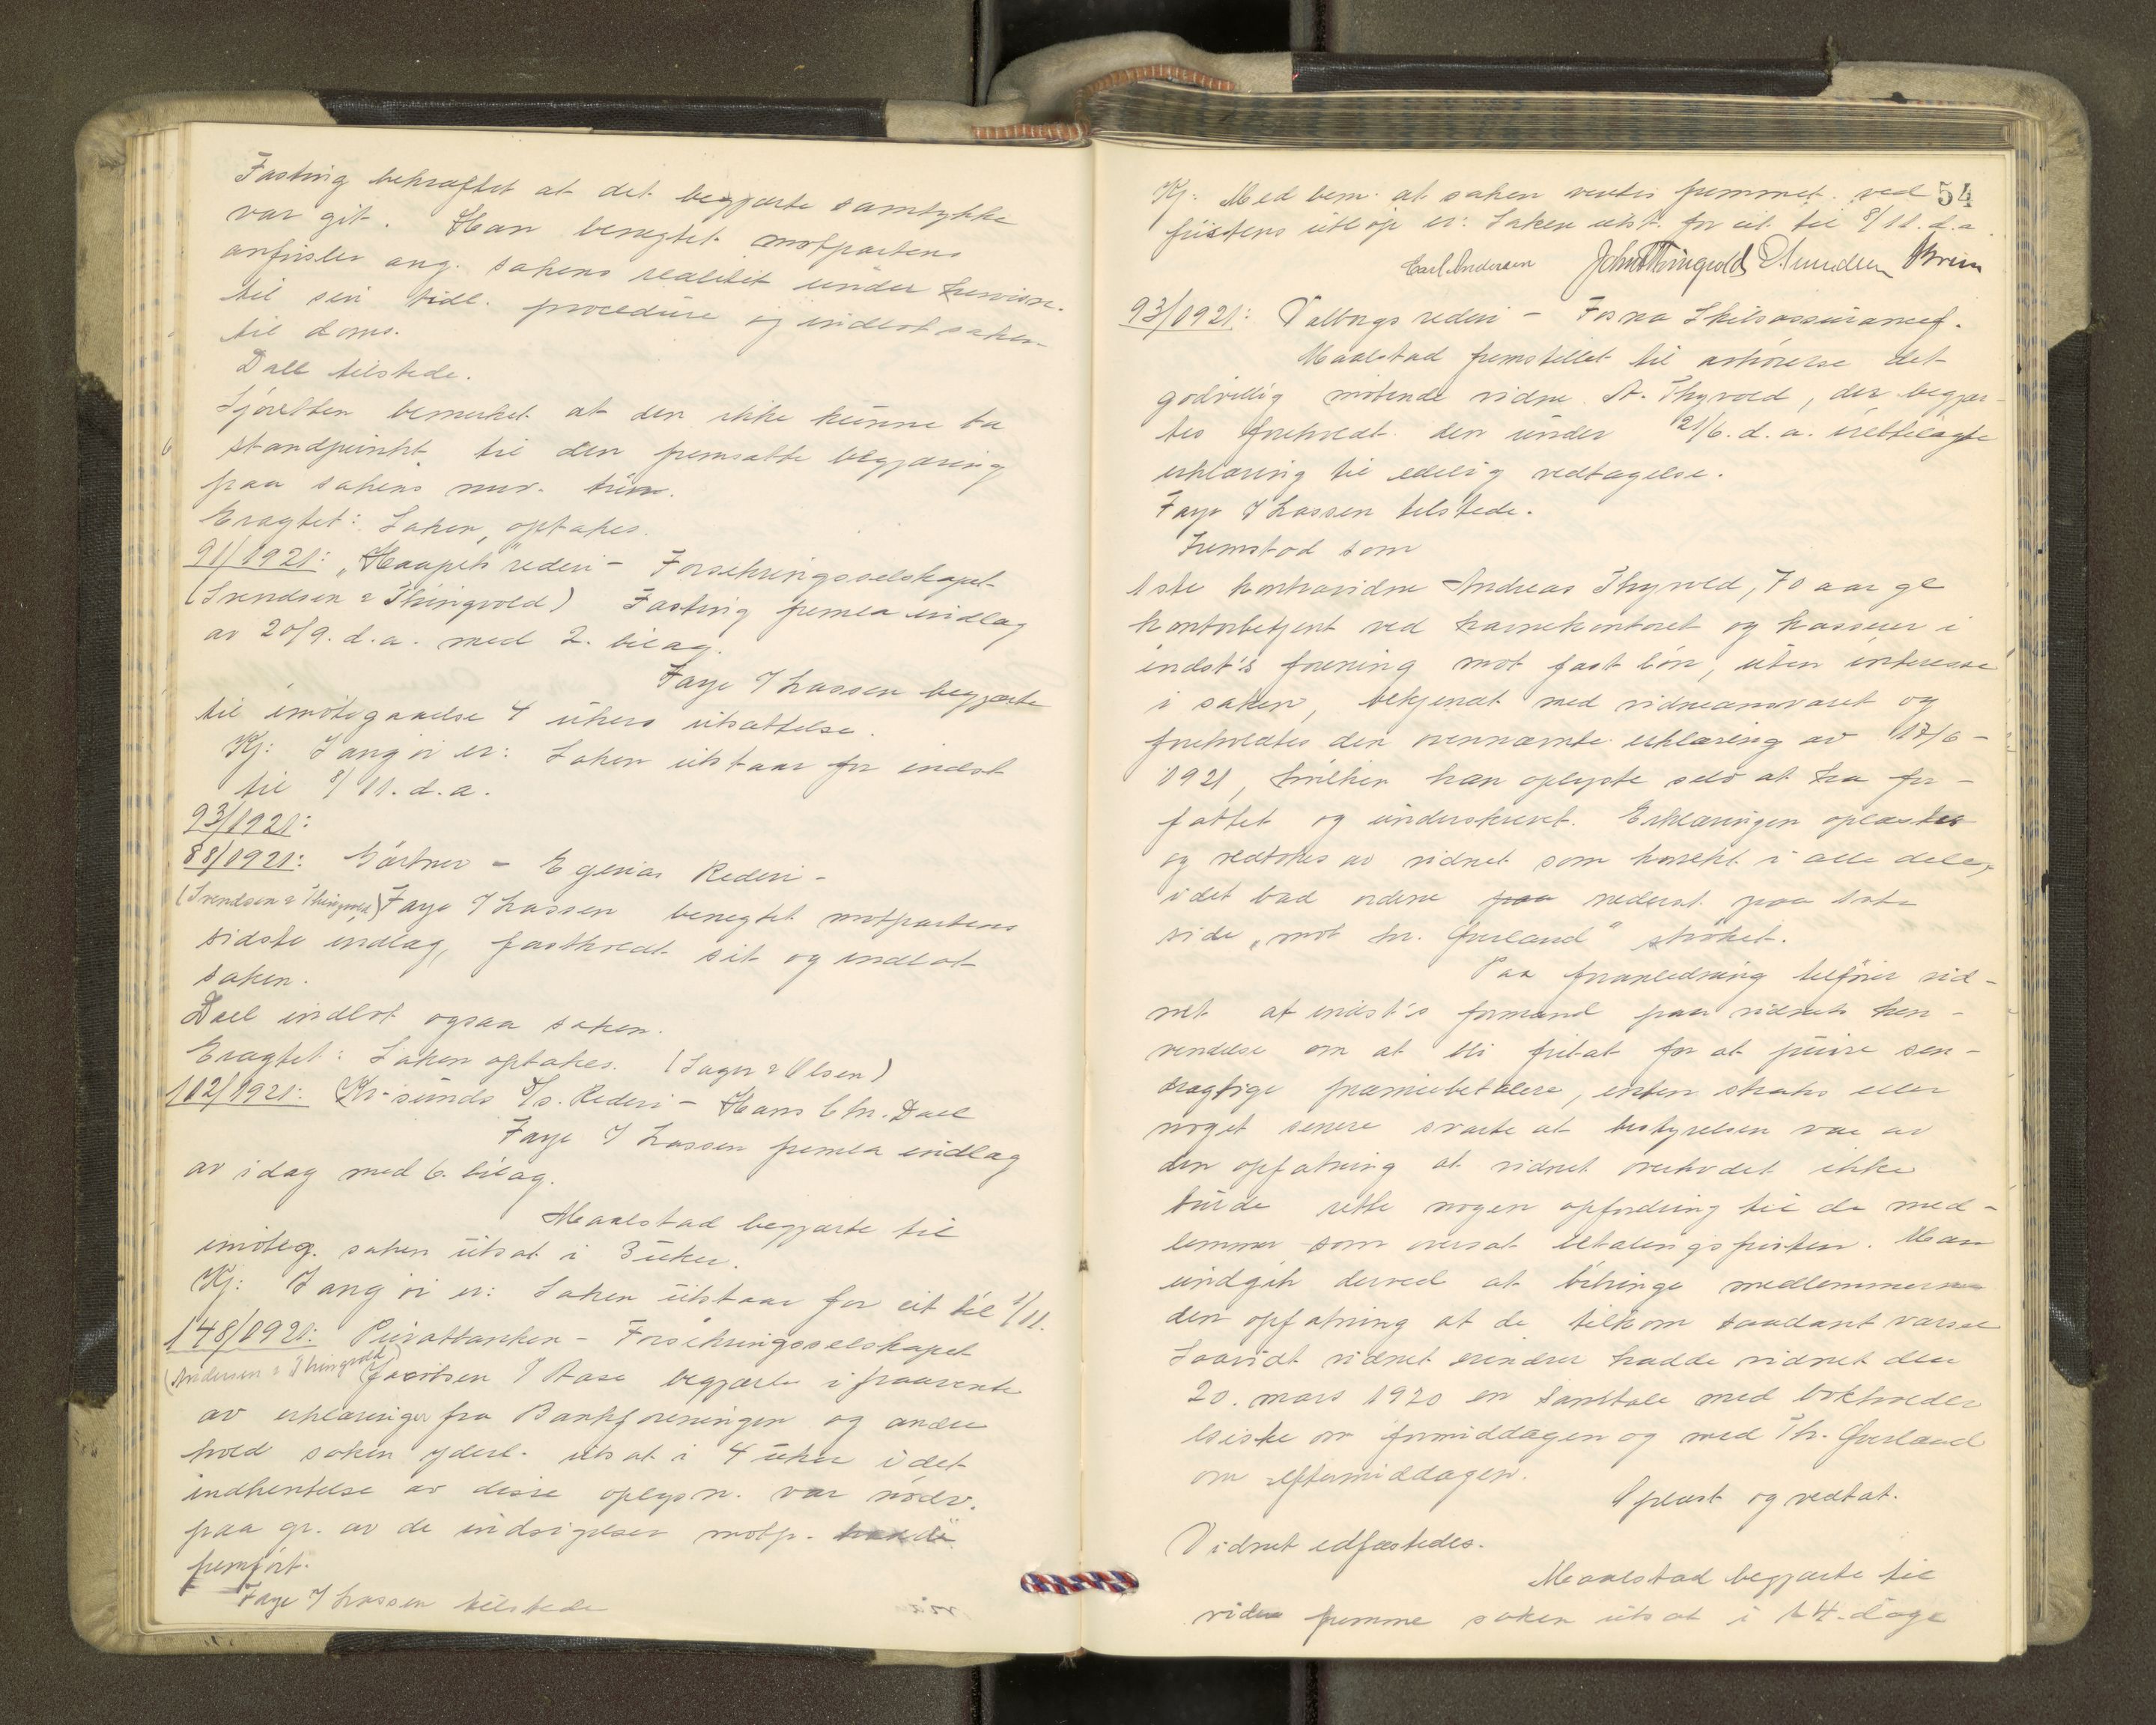 Fasting bekræftet at det begjærte samtykke
var git. Han benegtet motpartens
anførsler ang. sakens realitet under henvisn.
til sin tidl. procedure og indlot saken
til doms.
Dall tilstede.
Sjøretten bemerket at den ikke kunne ta
standpunkt til den fremsatte begjæring
paa sakens nuv. trin.
Eragtet: Saken optakes.
91/1921: "Haapets" rederi - Forsikringsselskapet
(Svendsen & Thingvold) Fasting fremla indlag
av 20/9. d.a. med 2. bilag.
Faye & Lassen begjærte
til imøtegaaelse 4 ukers utsættelse.
Kj: I ang. øi er: Saken utstaar for indst
til 8/11. d.a.
93/1921:
88/1921: Gärtner - Egerias Rederi -
(Svendsen & Thingvold) Faye & Lassen benegtet motpartens
sidste indlag, fastholdt sit og indlot
saken.
Dall indlot ogsaa saken.
Eragtet: Saken optakes. (Sager & Olsen)
102/1921: Kr.sunds D/s. Rederi - Hans Chr. Dall
Faye & Lassen fremla indlag
av idag med 6. bilag.
Maalstad begjærte til
imøteg. saken utsat i 3 uker.
Kj: I ang øi er: Saken utstaar for cit til 1/11.
148/1921: Privatbanken - Forsikringsselskapet
(Andersen & Thingvold) Jacobsen & Aase begjærte i paavente
av erklæringer fra Bankforeningen og andre
hold saken yderl. utsat i 4 uker idet
indhentelse av disse oplysn. var nødv.
paa gr. av de indsigelser motp. hadde
fremført.
Faye & Lassen tilstede
54
Kj: Med bem. at saken ventes fremmet ved
fristens utløp er: Saken utst. for cit. til 8/11. d.a.
Carl Andersen John Thingvold
93/1921: Valborgs rederi - Fosna Skibsassurancef.
Maalstad fremstillet til avhørelse det
godvillig møtende vidne A. Thyvold, der begjær-
tes foreholdt den under 21/6. d.a. irettelagte
erklæring til edelig vedtagelse.
Faye & Lassen tilstede.
Fremstod som
1ste kontravidne Andreas Thyvold, 70 aar gl
kontorbetjent ved havnekontoret og kasserer i
indst's forening mot fast løn, uten interesse
i saken, bekjendt med vidneansvaret og
foreholdtes den ovennævnte erklæring av 17/6-
1921, hvilken han oplyste selv at ha for-
fattet og underskrevet. Erklæringen oplæstes
og vedtokes av vidnet som korrekt i alle dele,
idet bad ordene paa nederst paa 1ste
side "mot hr. Gverland" strøket.
Paa foranledning tilføier vid-
net at indst's formand paa vidnets hen-
vendelse om at bli fritat for at purre sen-
drægtige præmiebetalere, enten straks eller
noget senere svarte at bestyrelsen var av
den opfatning at vidnet overhodet ikke
burde rette nogen opfordring til de med-
lemmer som oversat betalingsfristen. Man
undgik derved at bibringe medlemmerne
den opfatning at de tilkom saadant varsel
Saavidt vidnet erindrer hadde vidnet den
20. mars 1920 en samtale med bokholder
om formiddagen og med Th. Gverland
om eftermiddagen.
Oplæst og vedtat.
Vidnet edfæstedes.
Maalstad begjærte til
videre fremme saken utsat i 14. dage